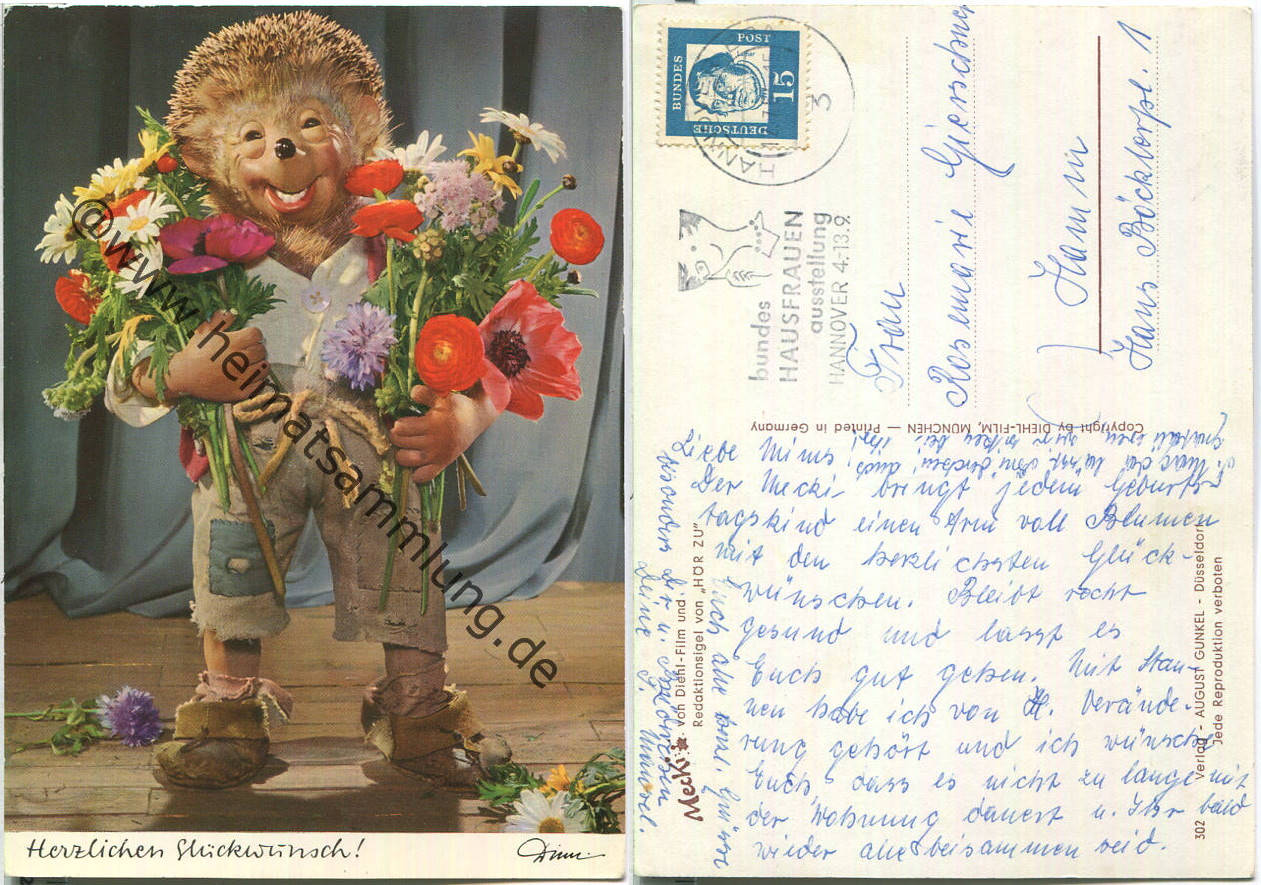 @www.heimatsammlung.de
Herzlichen Glückwunsch!
Diehl
DEUTSCHE
BUNDES
POST
15
Luther
3
bundes
HAUSFRAUEN
ausstellung
HANNOVER 4.-13.9.
Frau
Rosemarie
Hamm
Hans Böcklerpl. 1
Copyright by DIEHL-FILM, MÜNCHEN — Printed in Germany
Liebe Mimi!
Der Mecki bringt jedem Geburts-
tagskind einen Arm voll Blumen
mit den herzlichsten Glück-
wünschen. Bleibt recht
gesund und lasst es
Euch gut gehen. Mit Stau-
nen habe ich von H. Verände-
rung gehört und ich wünsche
Euch, dass es nicht zu lange mit
der Wohnung dauert u. Ihr bald
wieder alle beisammen seid.
Euch alle Grüsse
besonders Dir u.
Deine
Mecki
von Diehl-Film und
Redaktionsigel von „HÖR ZU"
302 Verlag - AUGUST GUNKEL - Düsseldorf
Jede Reproduktion verboten